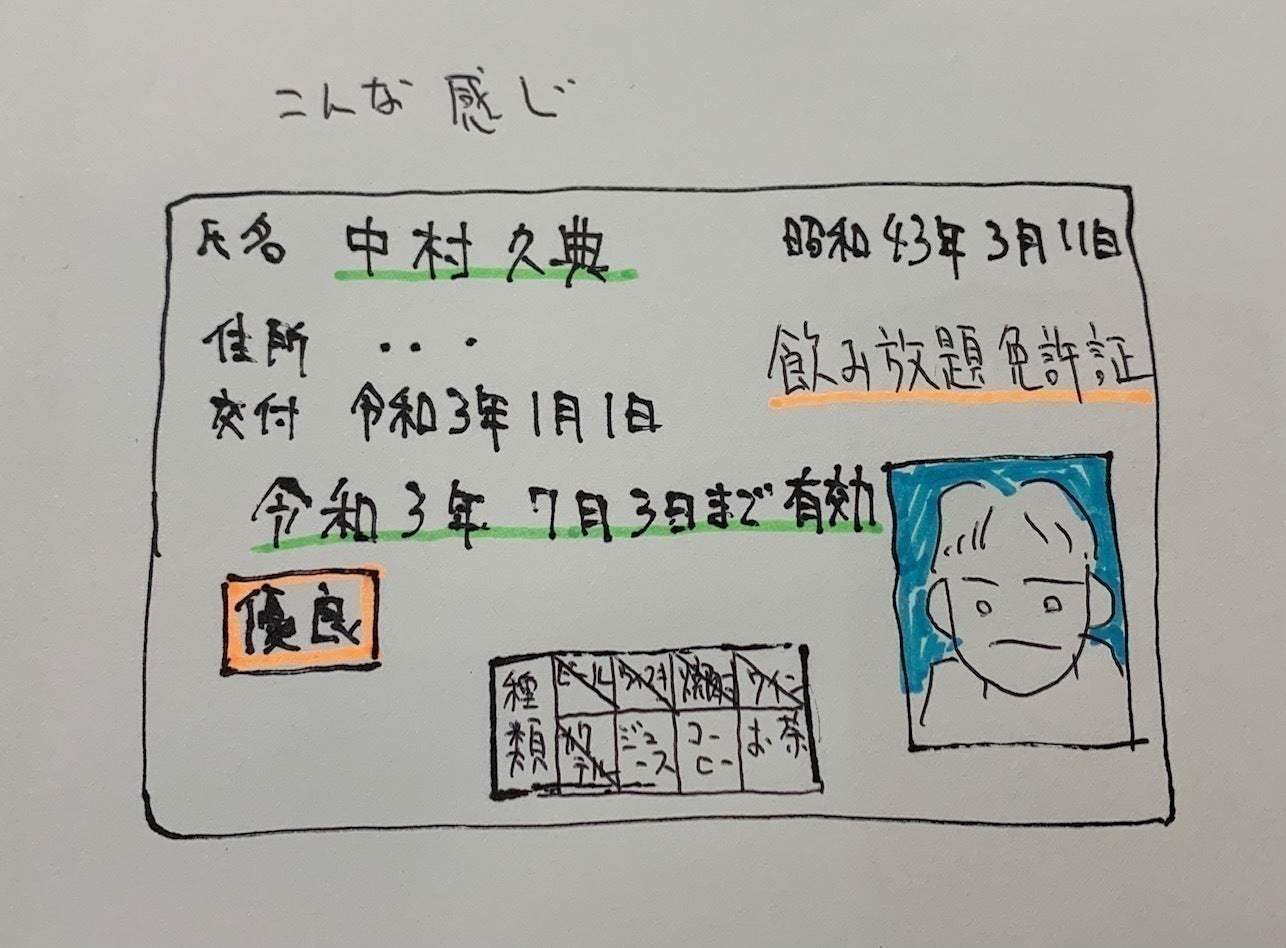 こんな感じ
氏名 中村久典 昭和43年3月11日
住所 ・・・
飲み放題免許証
交付 令和3年1月1日
令和3年7月3日まで有効
優良
種類 ビール ウイスキー 焼酎 ワイン
カクテル ジュース コーヒー お茶